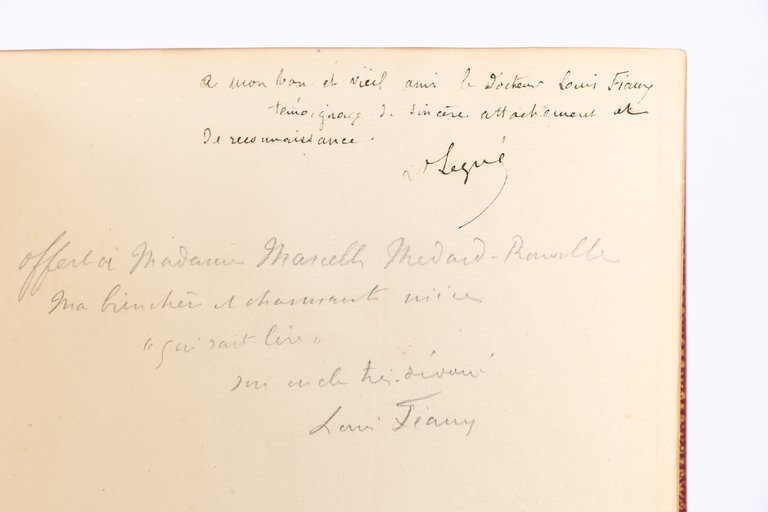 A mon bon et vieil ami le Docteur Louis Fiaux
témoignage de sincère attachement et
de reconnaissance.
Dr Legué
offert à Madame Marcelle Médard-
ma bien chère et charmante nièce
"qui sait lire"
son oncle très dévoué
Louis Fiaux